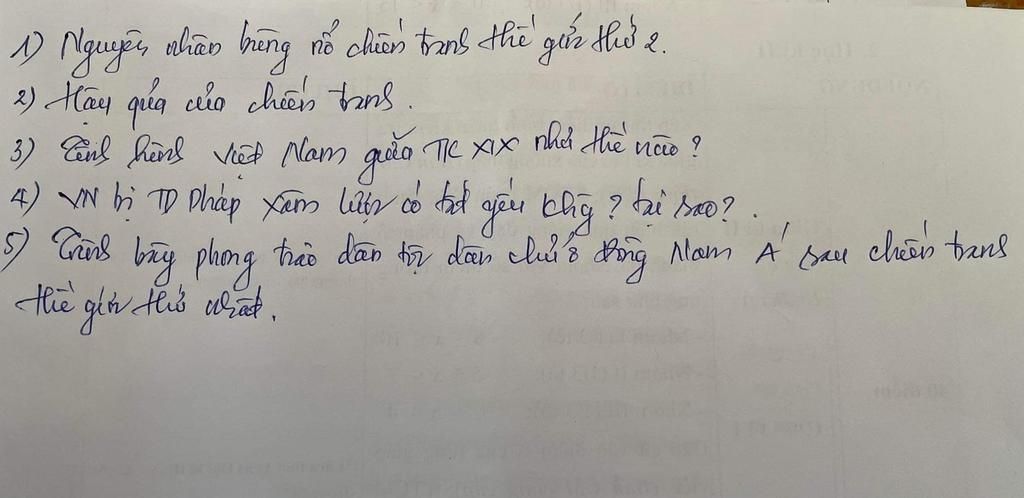 1) Nguyên nhân bùng nổ chiến tranh thế giới thứ 2.
2) Hậu quả của chiến tranh.
3) Tình hình Việt Nam giữa TK XIX như thế nào?
4) VN bị TD Pháp xâm lược có tất yếu không? tại sao?.
5) Trình bày phong trào dân tộc dân chủ ở Đông Nam Á sau chiến tranh
thế giới thứ nhất.